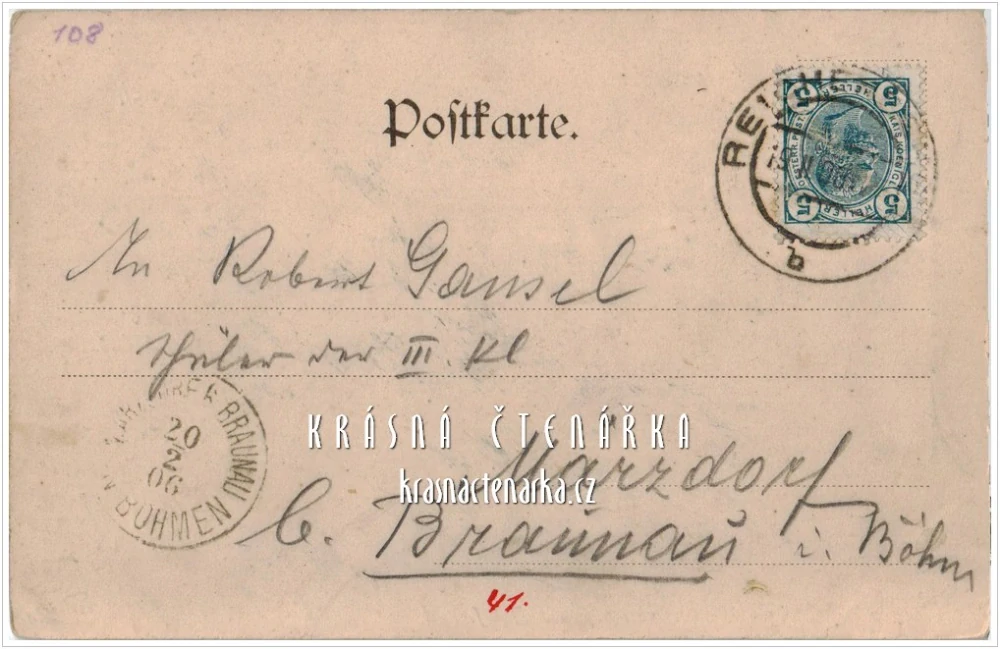 108
Postkarte.
5 5
5 5
An Robert Gansel
Schüler der III. Kl
BRAUNAU
20
2
06
BÖHMEN
KRÁSNÁ ČTENÁŘKA
krasnactenarka.cz
Märzdorf
b. Braunau i. Böhm
41.